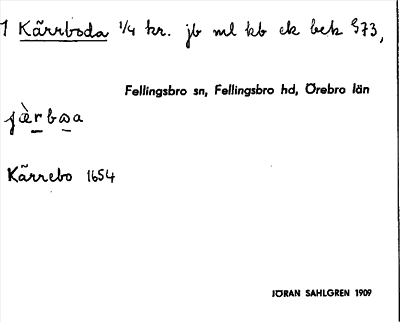 1 Kärrboda 1/4 kr. jb ml kb ek bek 573,
Fellingsbro sn, Fellingsbro hd, Örebro län
Kärrebo 1654
JÖRAN SAHLGREN 1909